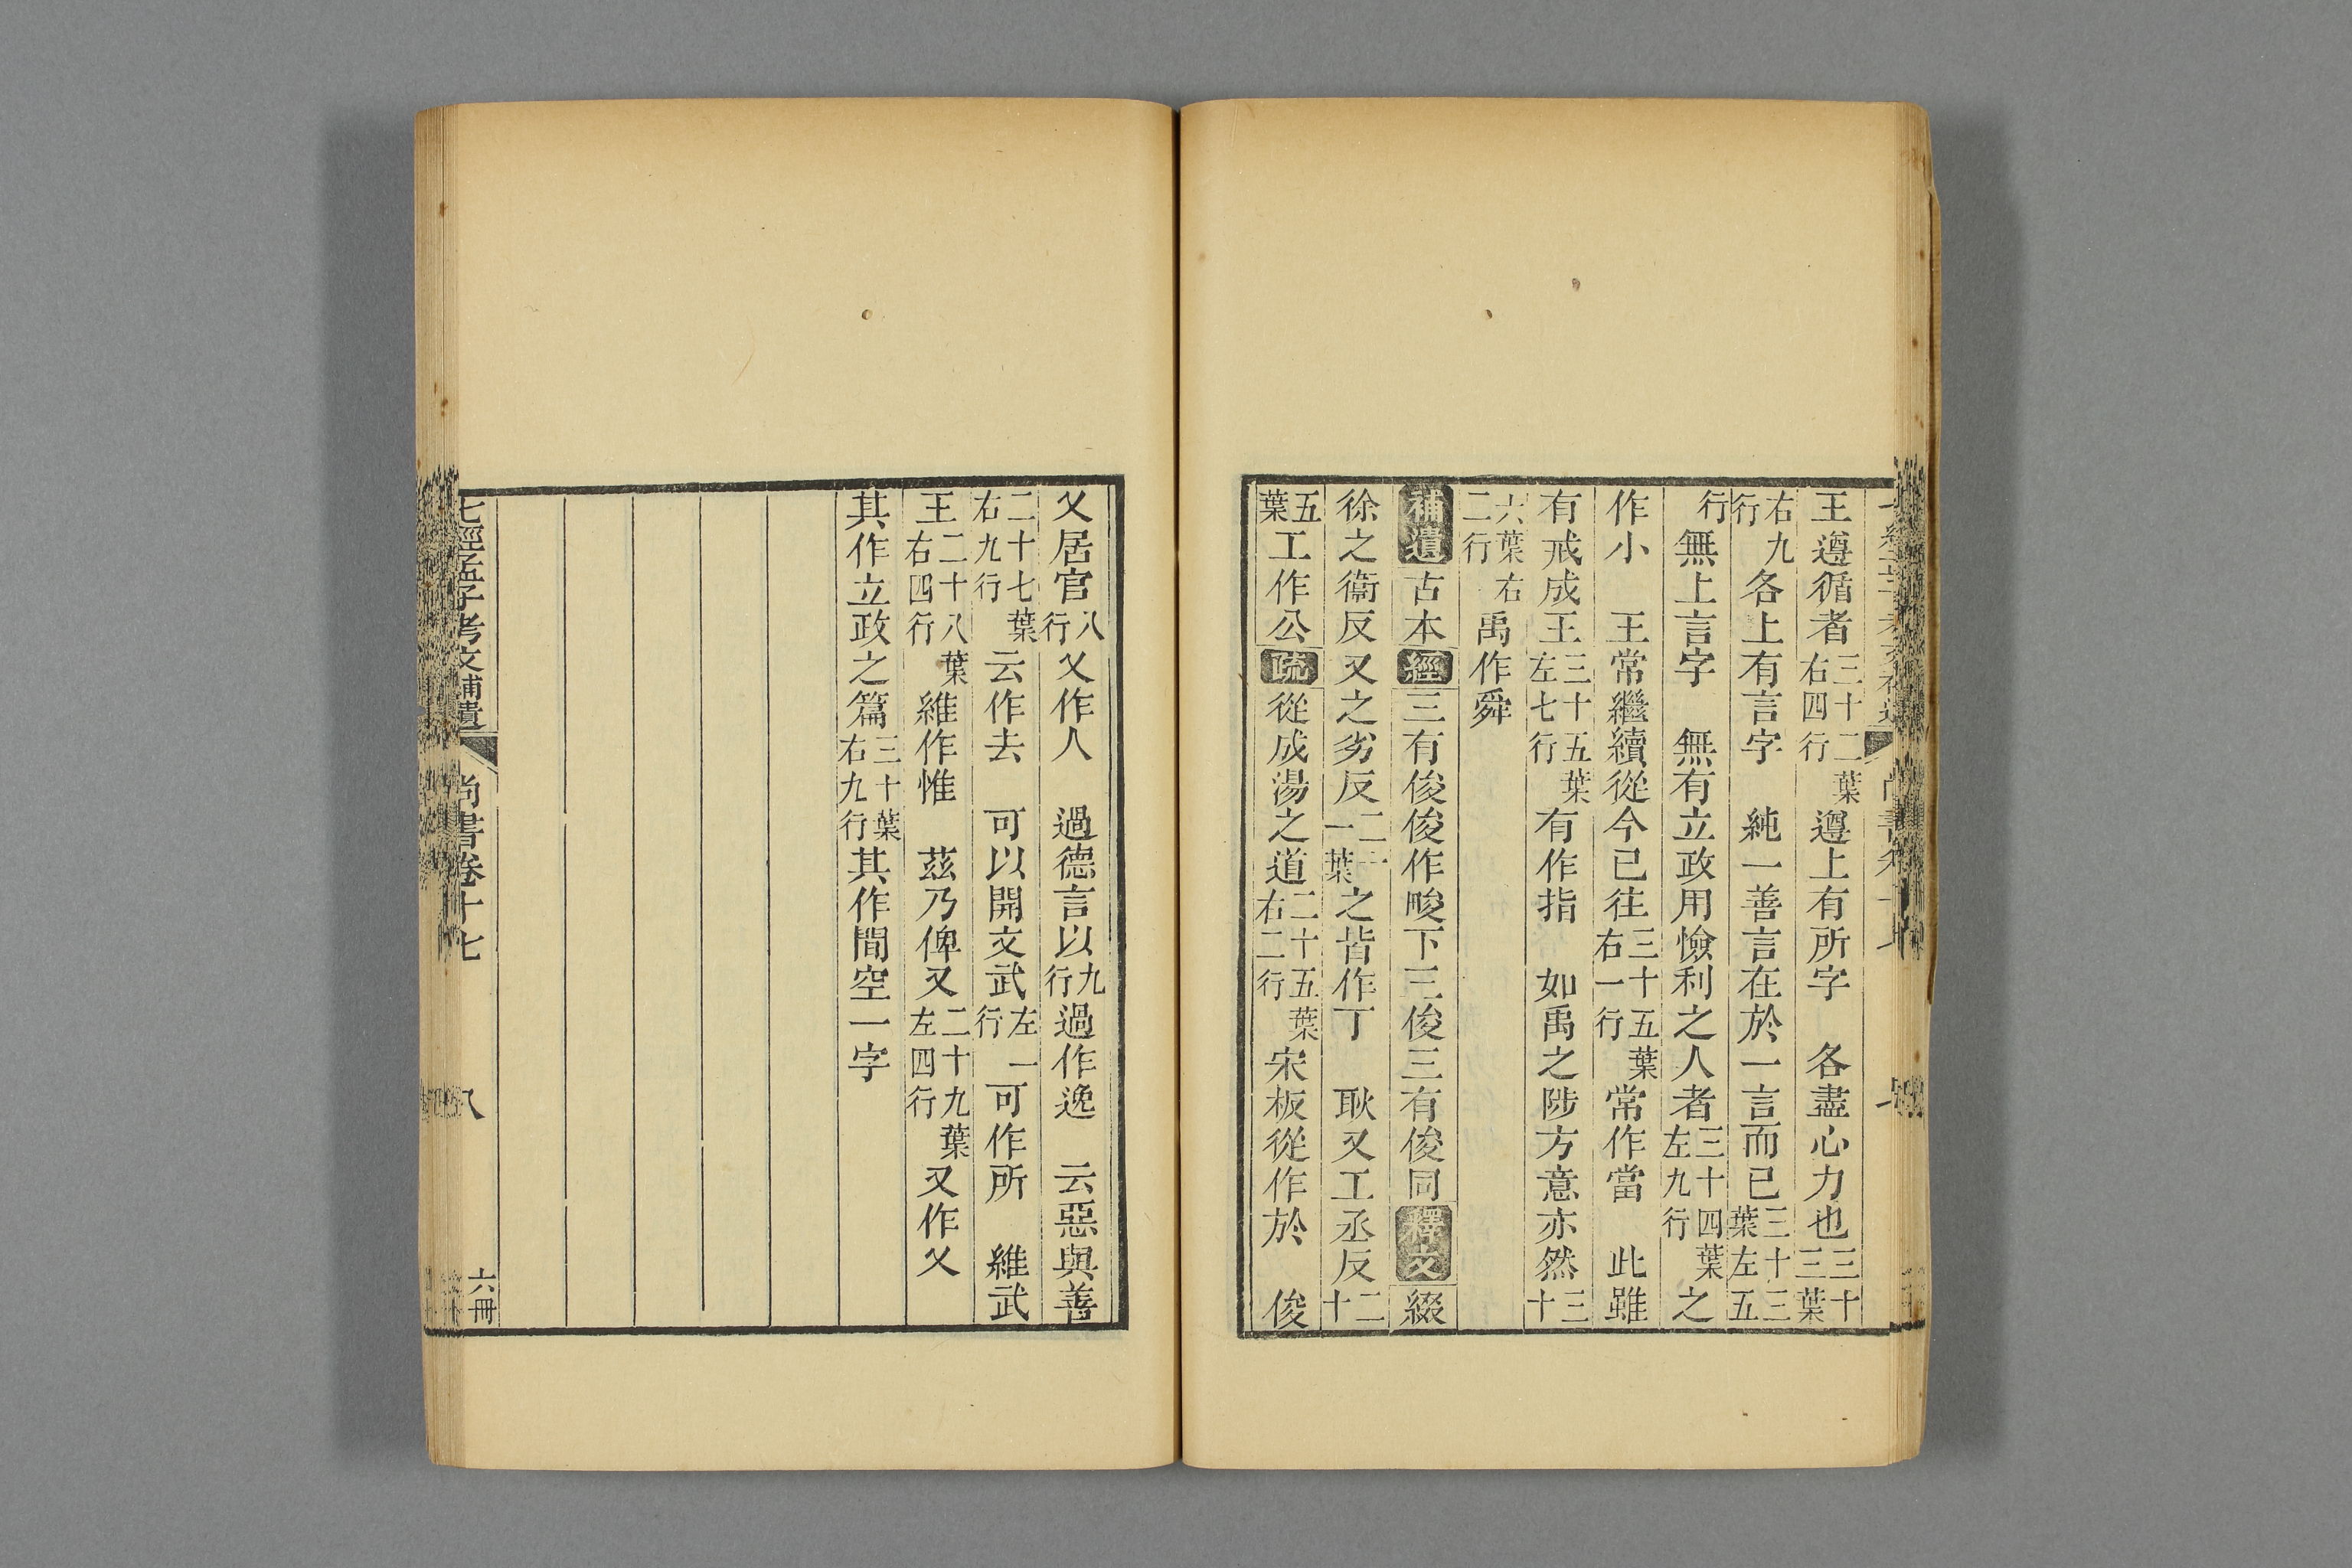 王遵循者三十二葉右四行遵上有所字　各盡心力也三十三葉
右九行各上有言字　純一善言在於一言而已三十三葉左五
行無上言字　無有立政用憸利之人者三十四葉左九行之
作小　王常繼續從今已往三十五葉右一行常作當　此雖
有戒成王三十五葉左七行有作指　如禹之陟方意亦然三十
六葉右二行禹作舜
補遺古本經三有俊俊作畯下三俊三有俊同釋文綴
徐之衞反又之劣反二十一葉之皆作丁　耿又工丞反二十
五葉工作公疏從成湯之道二十五葉右二行宋板從作於　俊
乂居官八行乂作人　過德言以九行過作逸　云惡與善
二十七葉右九行云作去　可以開文武左一行可作所　維武
王二十八葉右四行維作惟　茲乃俾又二十九葉左四行又作乂
其作立政之篇三十葉右九行其作間空一字
七經孟子考文補遺　尚書卷十七　八　六冊